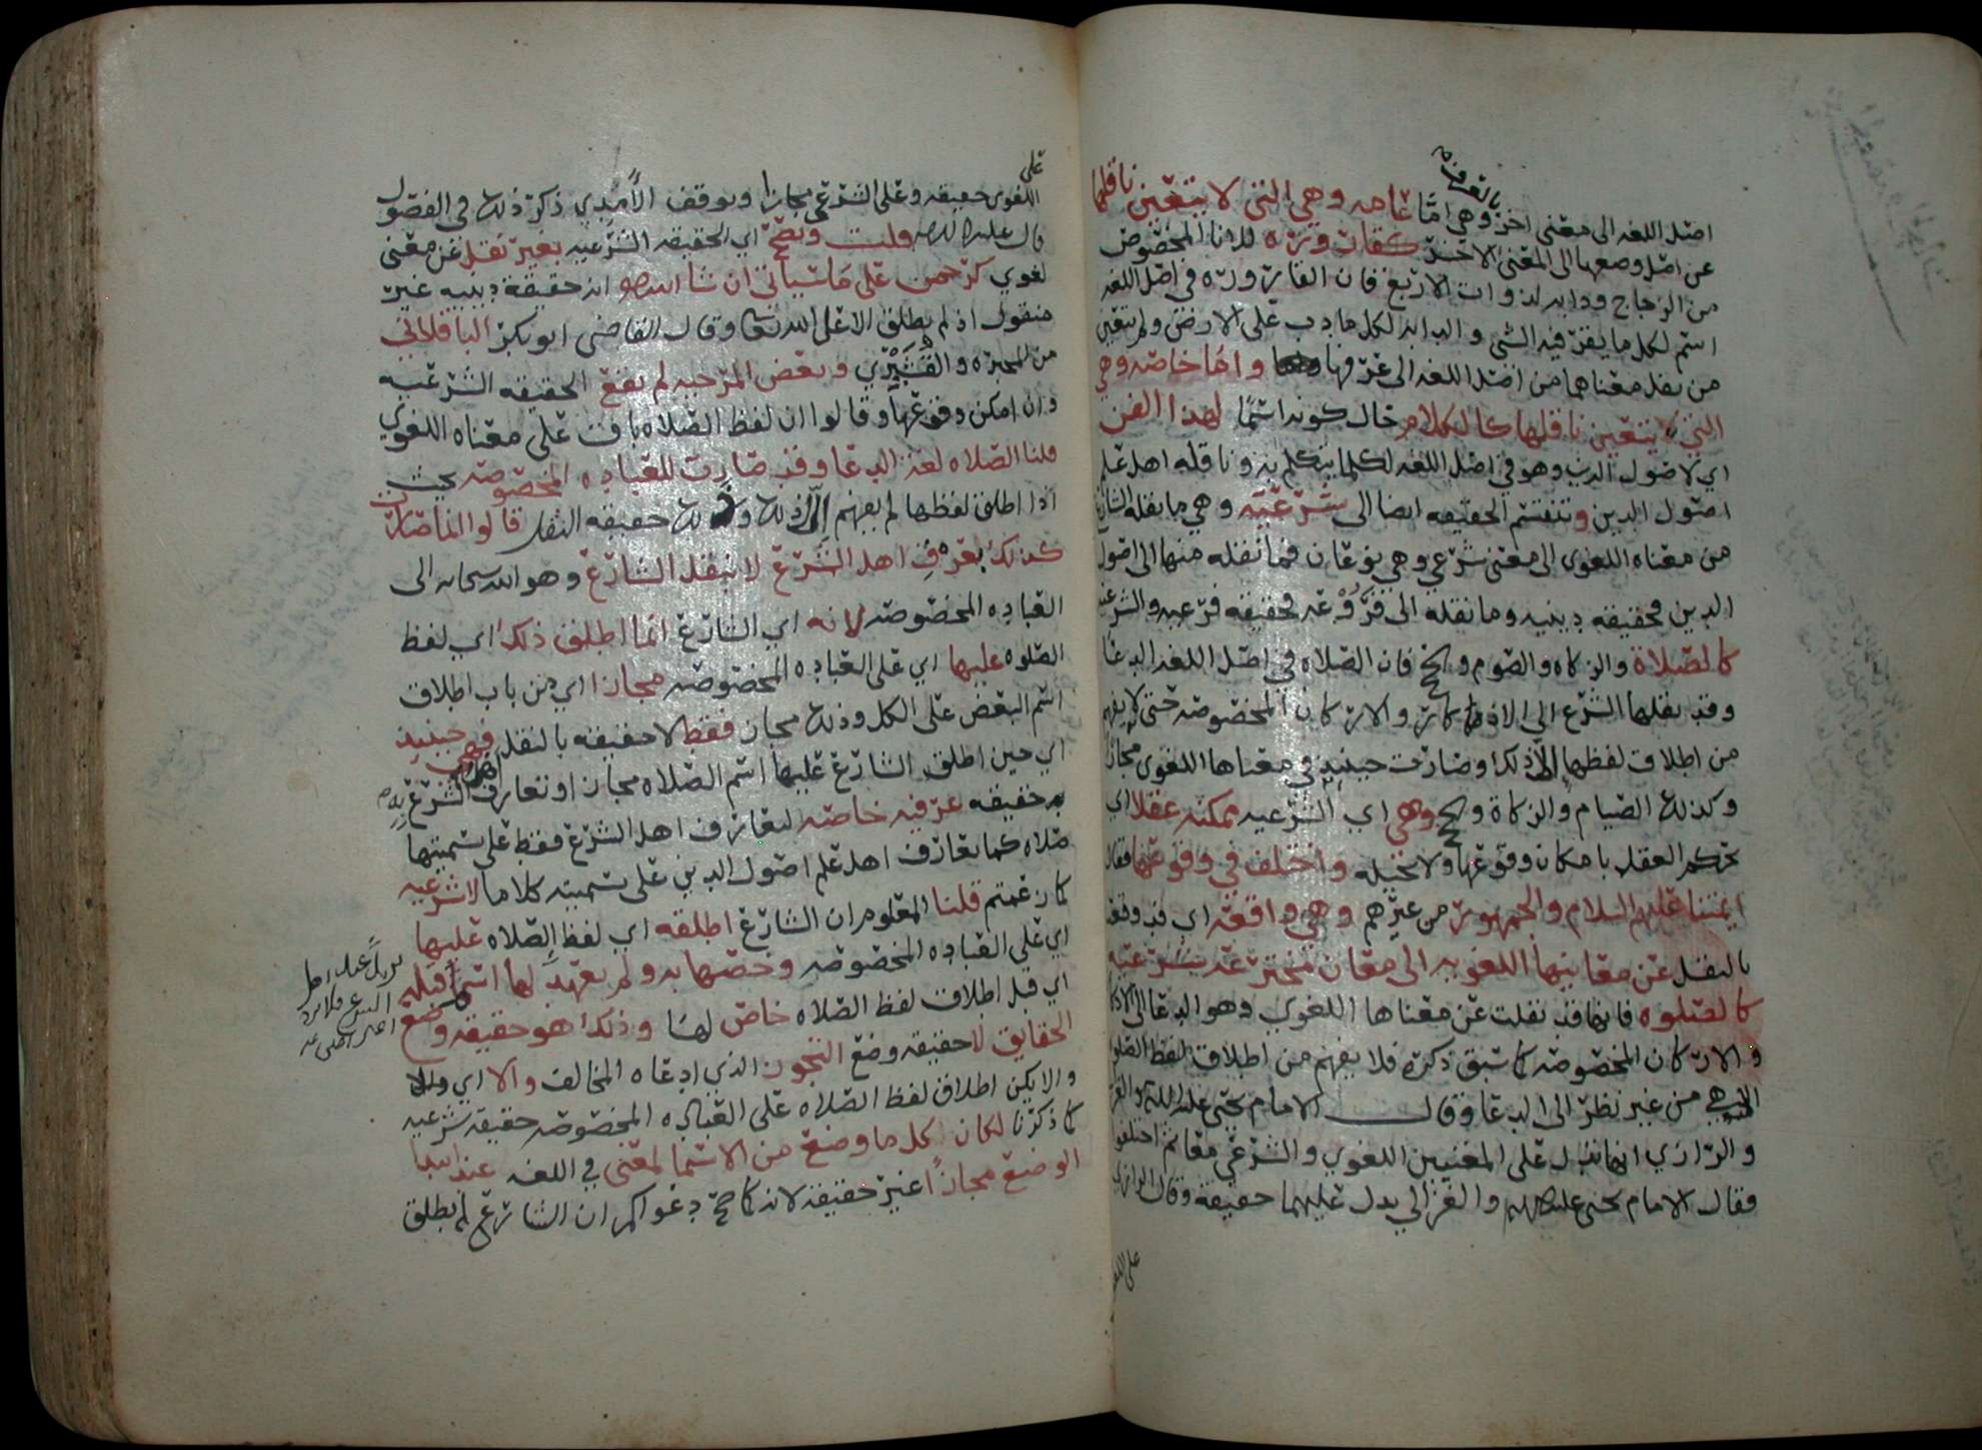 بالعرفيه
اصل اللغه الى معنى اخر وهي امّا عامه وهي التي لا يتعين ناقلها
عن اصل وضعها الى المعنى الاخر كقارورة للاناء المخصوص
من الزجاج ودابه لذوات الاربع فان القارورة في اصل اللغه
اسم لكل ما يقر فيه الشي والدابه لكل ما دب على الارض ولم يتعين
من نقل معناهما من اصل اللغه الى عرفها واما خاصه وهي
التي يتعين ناقلها كالكلام حال كونه اسمًا لهذا الفن
اي لاصول الدين وهو في اصل اللغه لكلما يتكلم به وناقله اهل علم
اصول الدين وتنقسم الحقيقه ايضا الى شرعيّه وهي ما نقله الشارع
من معناه اللغوى الى معنى شرعي وهي نوعان فما نقله منها الى اصول
الدين فحقيقه دينيه وما نقله الى فروعه فحقيقه فرعيه والشرعيه
كالصلاة والزكاه والصوم والحج فان الصلاه في اصل اللغه الدعا
وقد نقلها الشرع الى الاذكار والاركان المخصوصه حتى لا يفهم
من اطلاق لفظها الا ذلك وصارت حينيذ في معناها اللغوى مجازا
وكذلك الصيام والزكاة والحج وهي اي الشرعيه ممكنه عقلا اي
يحكم العقل بامكان وقوعها ولا يحيله واختلف في وقوعها فقال
ايمتنا عليهم السلام والجمهور من غيرهم وهي واقعه اي قد وقعت
بالنقل عن معانيها اللغويه الى معان مخترعه شرعيه
كالصلوه فانها قد نقلت عن معناها اللغوي وهو الدعا الى الاذكار
والاركان المخصوصه كما سبق ذكره فلا يفهم من اطلاق لفظ الصلوه
الا هي من غير نظر الى الدعا وقال الامام يحيى عليه السلام والغزالي
والرازي انها تدل على المعنيين اللغوي والشرعي معا ثم اختلفوا
فقال الامام يحيى عليه السلام والغزالي يدل عليهما حقيقة وقال الرازي
على اللغوى
على
اللغوى حقيقه وعلى الشرعي مجازا وتوقف الآمدي ذكر ذلك في الفصول
قال عليه السلام قلت وتصح اي الحقيقه الشرعيه بغير نقل عن معنى
لغوي كرحمن على ما سياتي ان شا الله انه حقيقة دينيه غير
منقول اذ لم يطلق الا على الله تعالى وقال القاضي ابو بكر الباقلاني
من المجبره والقشيري وبعض المرجيه لم تقع الحقيقه الشرعيه
وان امكن وقوعها وقالوا ان لفظ الصلاه باق على معناه اللغوي
قلنا الصلاه لغه الدعا وقد صارت للعباده المخصوصه بحيث
اذا اطلق لفظها لم يفهم الا ذلك وذلك حقيقه النقل قالوا انما صارت
كذلك بعرف اهل الشرع لا بنقل الشارع وهو الله سبحانه الى
العباده المخصوصه لانه اي الشارع انما اطلق ذلك اي لفظ
الصلوه عليها اي على العباده المخصوصه مجازا اي من باب اطلاق
اسم البعض على الكل وذلك مجاز فقط لا حقيقه بالنقل فهي حينيذ
اي حين اطلق الشارع عليها اسم الصلاه مجاز او تعارف اهل الشرع به
حقيقه عرفيه خاصه لتعارف اهل الشرع فقط على تسميتها
صلاه كما تعارف اهل علم اصول الدين على تسميته كلاما لا شرعيه
كما زعمتم قلنا المعلوم ان الشارع اطلقه اي لفظ الصلاه عليها
اي على العباده المخصوصه وخصها به ولم يعهد لها اسم قبله
اي قبل اطلاق لفظ الصلاه خاص لها وذلك هو حقيقه وضع
الحقايق لا حقيقه وضع التجوز الذي ادعاه المخالف والا اي
والا يكن اطلاق لفظ الصلاه على العباده المخصوصه حقيقه شرعيه
كما ذكرنا لكان كل ما وضع من الاسما لمعنى في اللغه عند ابتدا
الوضع مجازًا غير حقيقه لانه كما صح دعواكم ان الشارع لم يطلق